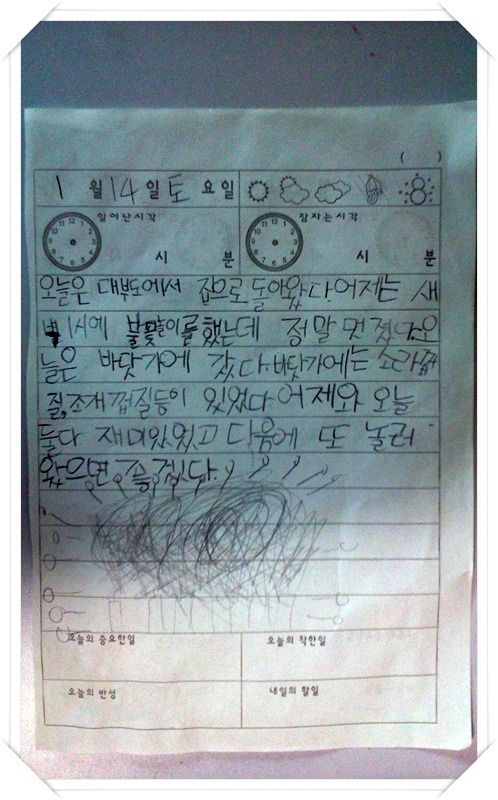 ( )
1 월 14 일 토 요일
일어난시각 잠자는시각
시 분 시 분
오늘은 대부도에서 집으로 돌아왔다.어제는 새
벽 1시에 불꽃놀이를했는데 정말 멋졌다.오
늘은 바닷가에 갔다.바닷가에는 소라껍
질,조개껍질등이 있었다 어제와 오늘
둘다 재미있었고 다음에 또 놀러
왔으면 좋겠다.
오늘의 중요한일 오늘의 착한일
오늘의 반성 내일의 할일